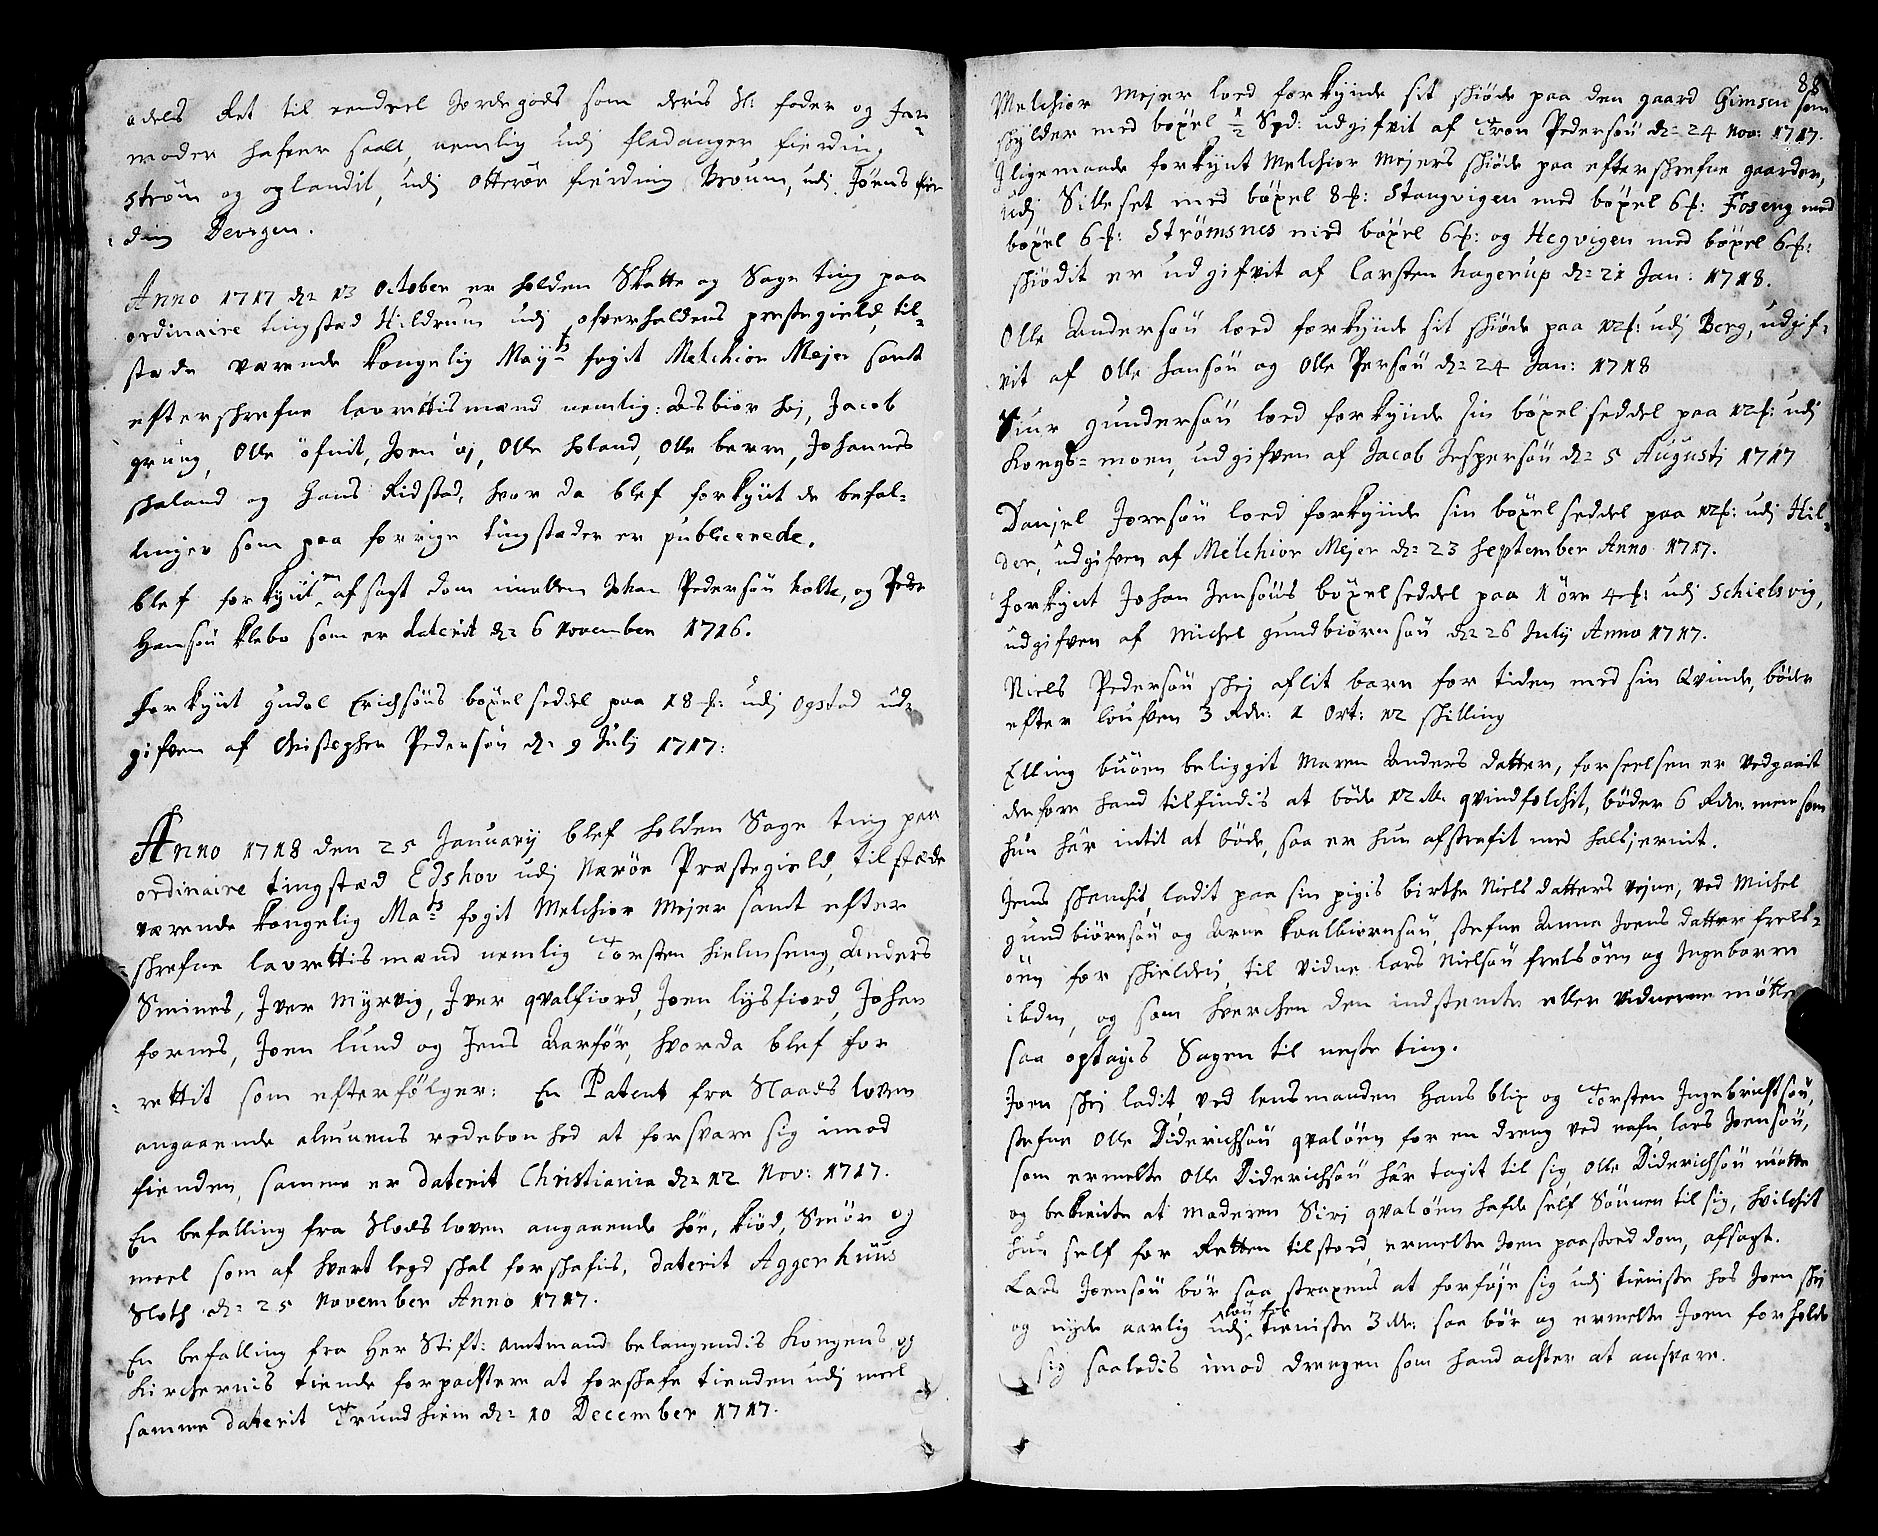 odels Ret til eendeel Jordegods som deris Sl: fader og Far¬
moder hafver saalt, nemlig udj fladanger fierding
Strøm og oplandit, udj otterøe fierding Broum, udj Joens fier
ding Devegen.
Anno 1717 d: 13 October er holden Skatte og Sage ting paa
ordinaire tingstæd Hildrum udj ofverhaldens prestegield, til¬
stæde værende kongelig Mayts fogit Melchior Mejer samt
efterskrefne laurettismænd nemlig: Asbiør hoj, Jacob
grung, Olle öfuit, Joen øj, Olle holand, Olle berre, Johannes
skaland og Hans Ridstad, hvor da blef forkynt de befal¬
linger som paa forrige tingstæder er publicerede.
blef forkynt en afsagt dom imellem Johan Pedersøn holte, og Peder
Hansøn klebo som er daterit d: 6 November 1716.
forkynt gudal Erichsøns böxelseddel paa 18 #: udj ogstad ud¬
gifven af Christopher Pedersøn d: 9 Julj 1717:
Anno 1718 den 25 Januarij blef holden Sage ting paa
ordinaire tingstæd Edshov udj Nærøe Præstegield, tilstæde
værende kongelig Mats fogit Melchior Mejer samt efter
skrefne laurettismænd nemlig Torsten hielmseng, Anders
Smines, Jver Myrvig, Jver qvalfiord, Joen lysfiord, Johan
fornes, Joen lund og Jens Aarför, hvorda blef for
rettit som efterfölger: En Patent fra Slaads loven
angaaende almuens redebonhed at forsvare sig imod
fienden, samme er daterit Christiania d: 12 Nov: 1717.
En befalling fra Slodsloven angaaende höe, kiöd, Smör og
meel som af hvert legd skal forskafis, daterit Aggerhuus
Sloth d: 25 November Anno 1717.
En befalling fra Her Stift: amtmand belangendis kongens og
kirchernis tiende forpachtere at forskafe tienden udj meel
samme daterit Trundhiem d: 10 December 1717.
88
Melchior Mejer loed forkynde sit skiöde paa den gaard Gimsen som
skylder med böxel 1/2 Spd: udgifvit af Tron Pedersøn d: 24 Nov: 1717.
Jligemaade forkynt Melchior Mejers skiöde paa efterskrefne gaarder,
udj Sillesset med böxel 8 #: Stangvigen med böxel 6 #: Foseng med
böxel 6 #: Strömsnes med böxel 6 #: og Hegvigen med böxel 6 #:
skiödit er udgifvit af Carsten hagerup d: 21 Jan: 1718.
Olle Andersøn loed forkynde sit skiöde paa 12 #: udj Berg, udgif¬
vit af Olle Hansøn og Olle Persøn d: 24 Jan: 1718
Siur gundersøn loed forkynde sin böxelseddel paa 12 #: udj
kongs=moen, udgifven af Jacob Jespersøn d: 5 Augustj 1717
Danjel Joensøn loed forkynde sin böxelseddel paa 12 #: udj Hil¬
der, udgifven af Melchior Mejer d: 23 September Anno 1717.
forkynt Johan Jensøns böxelseddel paa 1 öre 4 #: udj Schielsvig,
udgifven af Michel gundbiörnsøn d: 26 Julij Anno 1717.
Niels Pedersøn skej aflit barn for tiden med sin Qvinde, böder
efter loufven 3 Rdr: 1 Ort: 12 skilling
Elling buöen beliggit Maren Anders datter, forseelsen er vedgaait
derfore hand tilfindis at böde 12 Rdr. qvindfolchit, böder 6 Rdr. men som
hun har intit at böde, saa er hun afstrafit med halsjernit.
Jens skamsis, ladit paa sin pigis birthe Nielsdatters vejne, ved Michel
gundbiörnsøn og Arne kaalbiörnsøn, stefne Anna Joensdatter frels¬
öen for skielderj, til vidne lars Nielsøn frelsöen og Jngeborre
ibdm, og som hverchen den indstemte eller vidnerne mötte
saa optages Sagen til neste ting.
Joen skej ladit ved lensmanden Hans blix og Torsten Jngebrichtsøn,
stefne Olle Diderichsøn qvalöen for en dreng ved nafn lars Joensøn,
som ermelte Olle Diderichsøn har tagit til sig, Olle Diderichsøn mötte
og bekiente at moderen Sirj qvalöen hafde self Sönnen til sig, hvilchit
hun self for Retten tilstoed, ermelte Joen paastoed dom, afsagt.
Lars Joensøn bör saa straxens at forföje sig udj tieniste hos Joen skej
og nyde aarlig udj tieniste 3 Rdr: saa bör og ermelte Joen forholde
sig saaledis imod drengen som hand achter at ansvare.